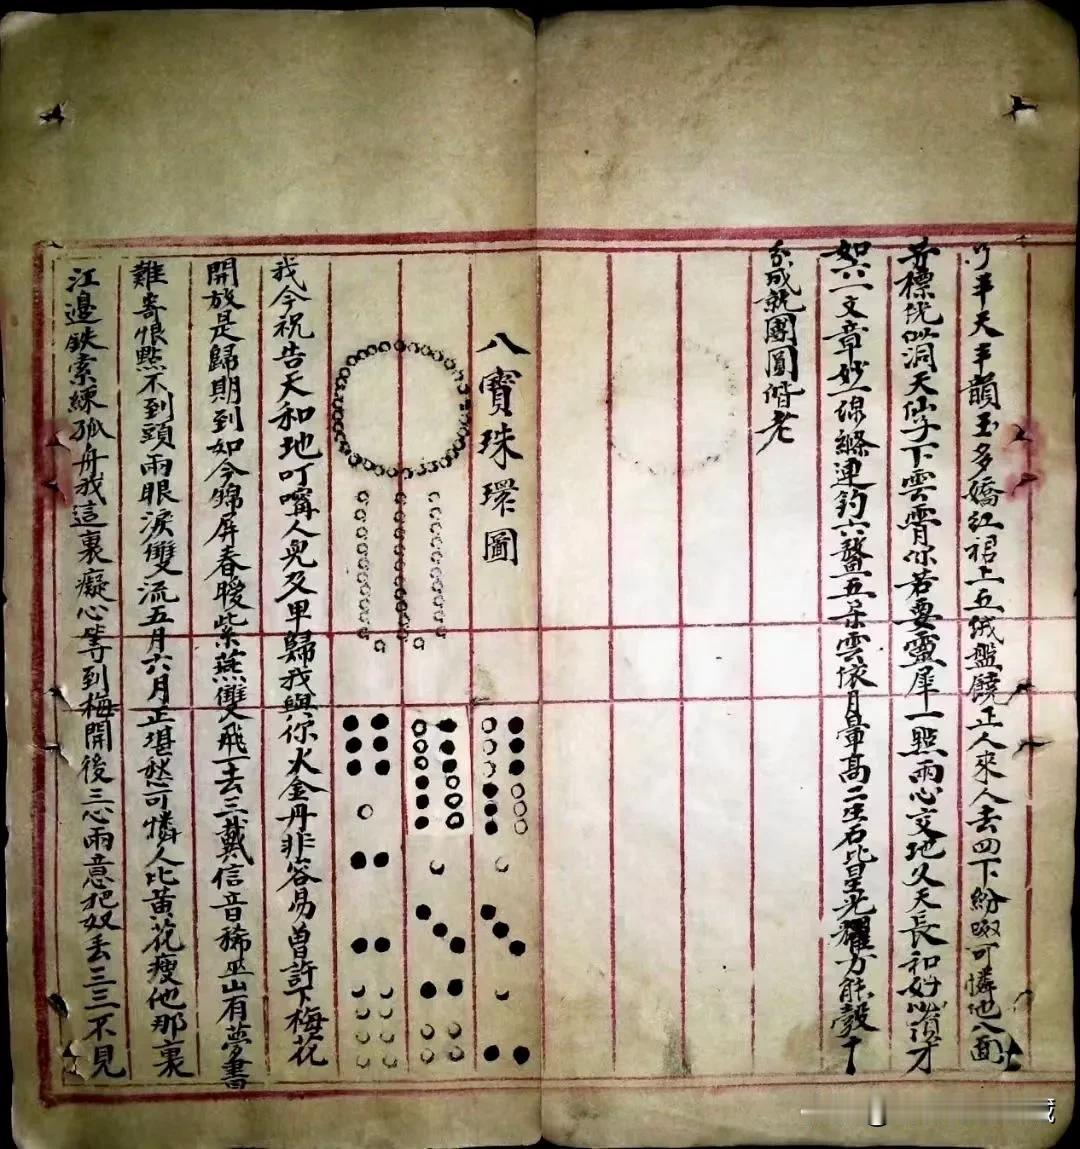 天丰韻玉多嬌红裙上五絨盤饒正人來人去四下紛 可憐他八面
標 似洞天仙子下雲霄你若要靈犀一點兩心交地久天長和好 須才
如六一文章妙一線 連鈞六鰲五朵雲依月暈高二 石皆呈光耀方能彀十
分成就團圓偕老
八寶珠環圖
我今祝告天和地叮嚀人兒及早歸我與你火金丹非容易曾許下梅花
開放是歸期到如今錦屏春暖紫燕雙飛一去三載信音稀巫山有夢書
難寄恨點不到頭兩眼淚雙流五月六月正堪愁可憐人比黃花瘦他那裏
江邊鉄索練孤舟我這裏癡心等到梅開後三心兩意把奴丢三三不見